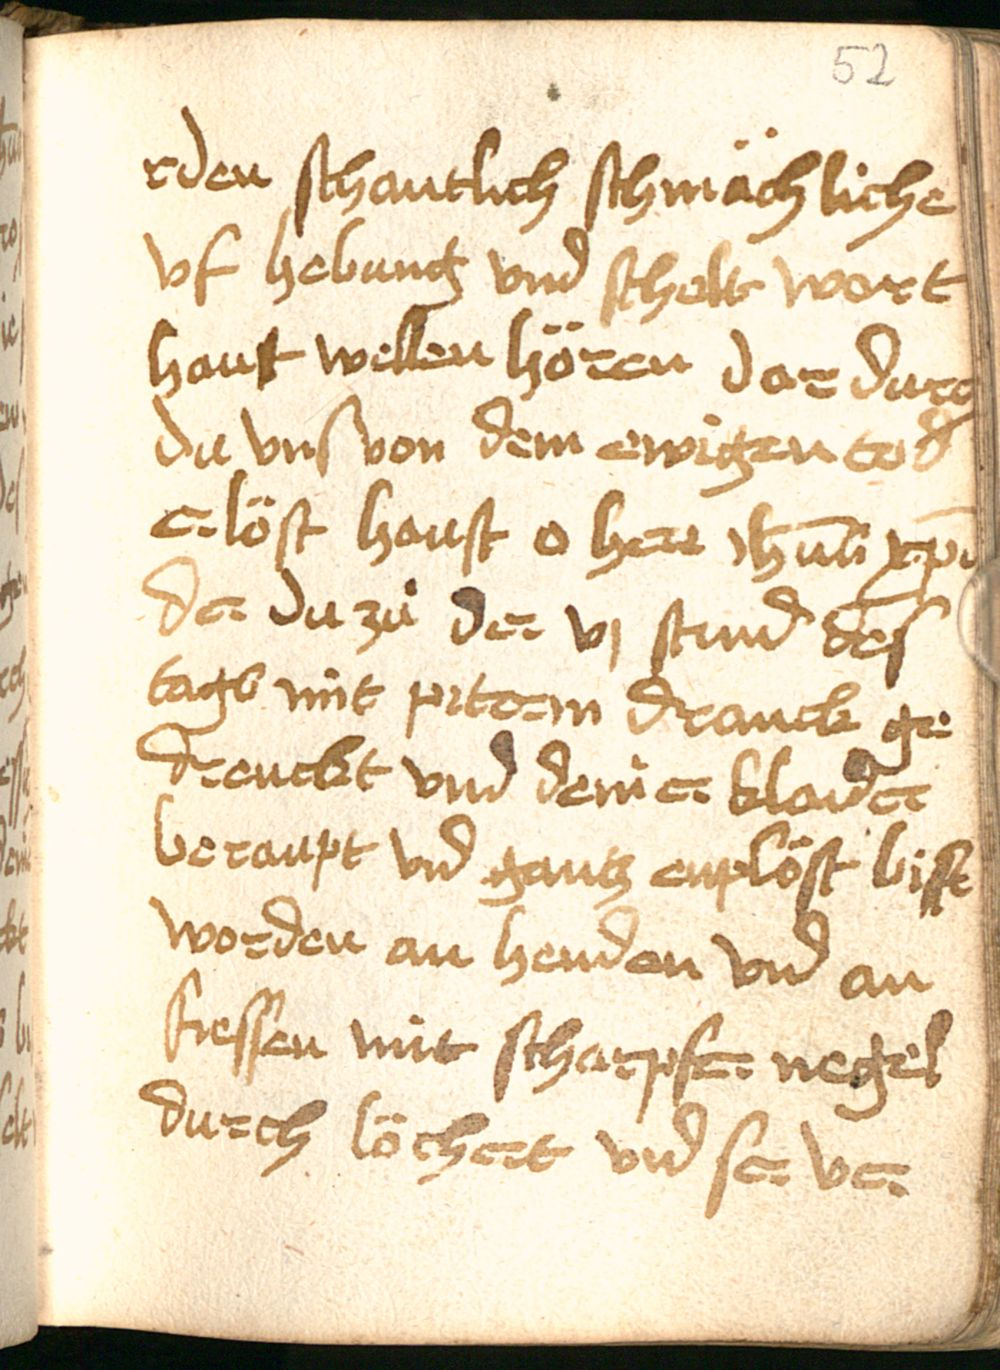 52
rden schantlich schmächliche
vf hebung vnd schelt wort
haust wellen hören dar durch
du vns von dem ewigen tod
erlöst haust o herr ihus xpe
der du zů der vj stund des
tags mit pitterm dranck ge
drenckt vnd deiner klaider
beraupt vnd gantz enplöst bist
worden an henden vnd an
fiessen mit scharpfer negel
durch löchert vnd ser ver